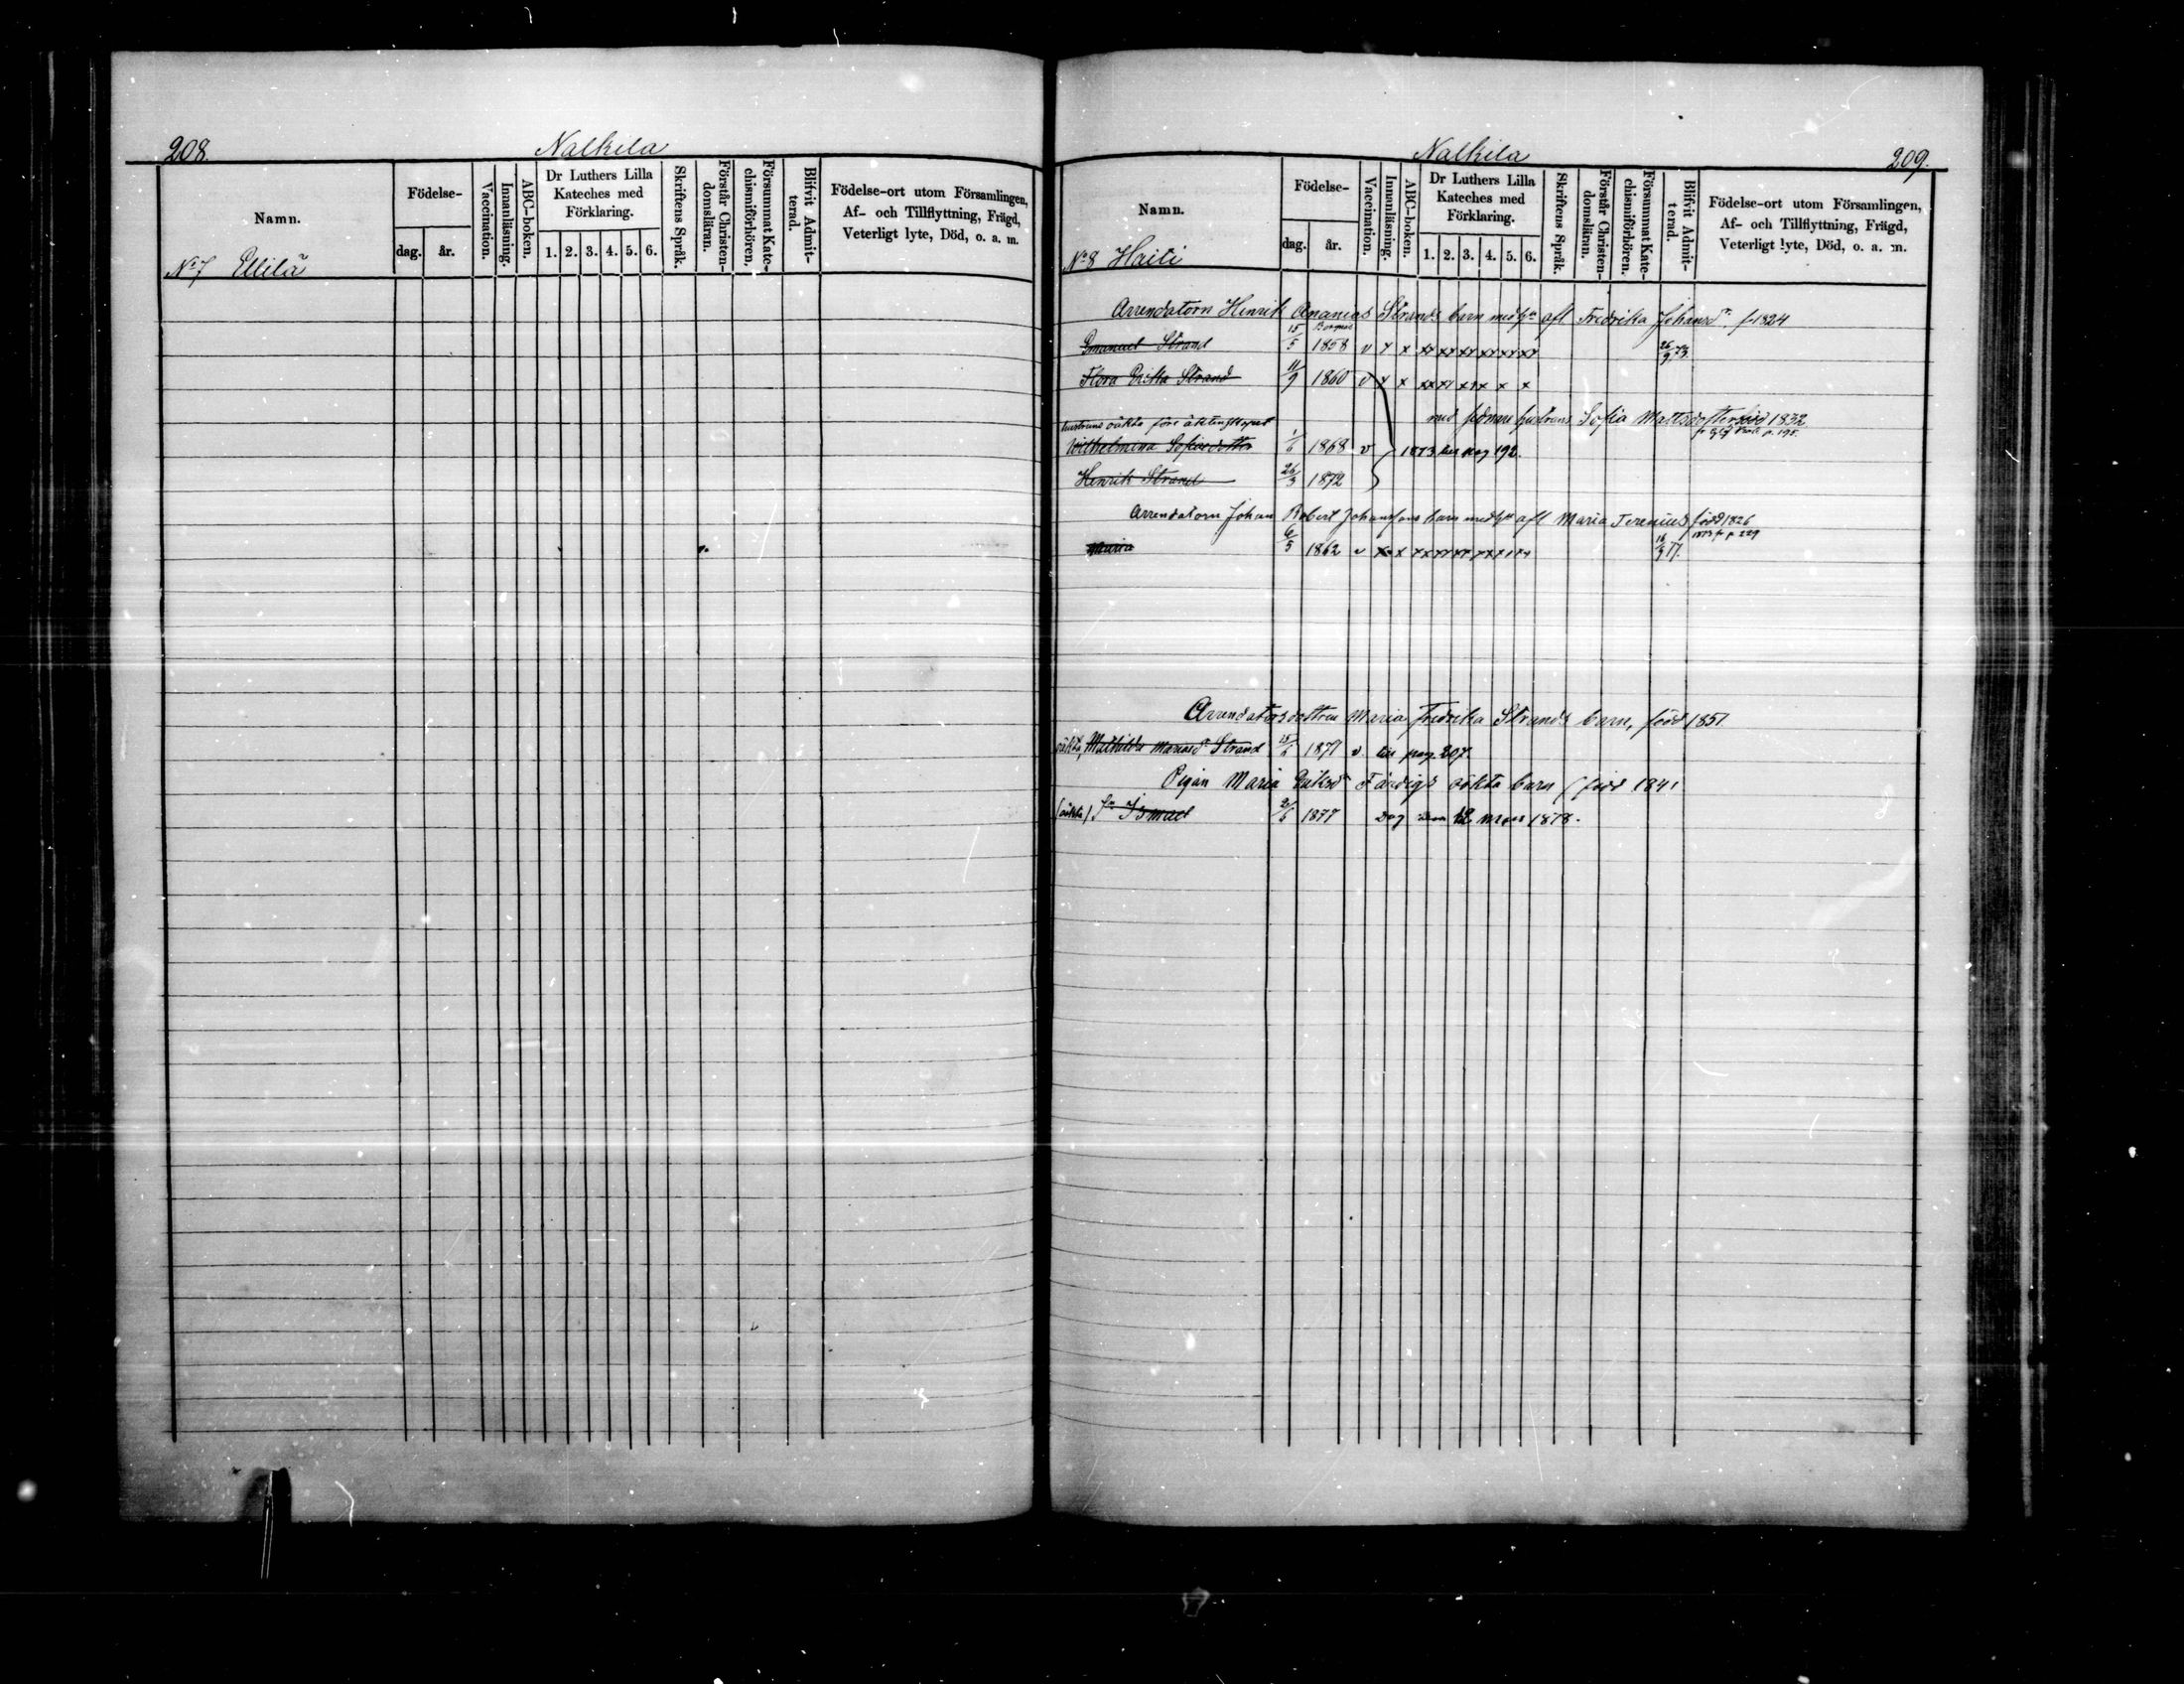 208.
Nalkila
Namn.
Födelse-
dag.
år.
Vaccination.
Innanläsning.
ABC-boken.
Dr Luthers Lilla
Kateches med
Förklaring.
1. 2. 3. 4. 5. 6.
Skriftens Språk.
Förstår Christen-
domsläran.
Försummat Kate-
chismiförhören.
Blifvit Admit-
terad.
Födelse-ort utom Församlingen,
Af- och Tillflyttning, Frägd,
Veterligt lyte, Död, o. a. m.
No 7 Ulilä
Nalkila
209.
Namn.
Födelse-
dag.
år.
Vaccination.
Innanläsning.
ABC-boken.
Dr Luthers Lilla
Kateches med
Förklaring.
1. 2. 3. 4. 5. 6.
Skriftens Språk.
Förstår Christen-
domsläran.
Försummat Kate-
chismiförhören.
Blifvit Admit-
terad.
Födelse-ort utom Församlingen,
Af- och Tillflyttning, Frägd,
Veterligt lyte, Död, o. a. m.
No 8 Haiti
Arrendatorn Henrik Ananias Strands barn med hu afl Fredrika Johansdr f. 1824
Emanuel Strand 15/5 1858 v x x xx xx xx xx xx xx 26/9 73.
Flora Erika Strand 11/9 1860 v x x xx xx xx x x x
med sednare hustrun Sofia Mattsdotter född 1832
hustruns oäkta före äktenskapet
Wilhelmina Sofiasdotter 1/6 1868 v 1873 pag 192.
Henrik Strand 26/3 1872
Arrendatorn Johan Robert Johanssons barn med hu afl Maria Terenius född 1826
1873 fr p 229
Maria 6/5 1862 v x x xx xx xx xx xx xx 16/9 77.
Arrendatorsdottren Maria Fredrika Strands barn, född 1851
oäkta, Mathilda Mariasdr Strand 15/6 1877 v. pag. 207.
Pigan Maria Eriksdr Färdigs oäkta barn (född 1841
(oäkta) Ismael 2/6 1877 Dog den 12 Mars 1878.